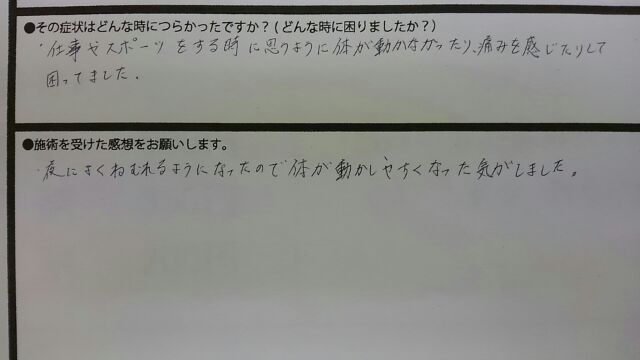 ●その症状はどんな時につらかったですか？(どんな時に困りましたか？)
・仕事やスポーツをする時に思うように体が動かなかったり、痛みを感じたりして
困ってました。
●施術を受けた感想をお願いします。
・夜によくねむれるようになったので体が動かしやすくなった気がしました。